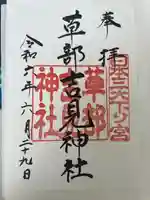 奉拝
日本三大下り宮
草部吉見神社
草部
吉見
神社
令和六年六月二十九日